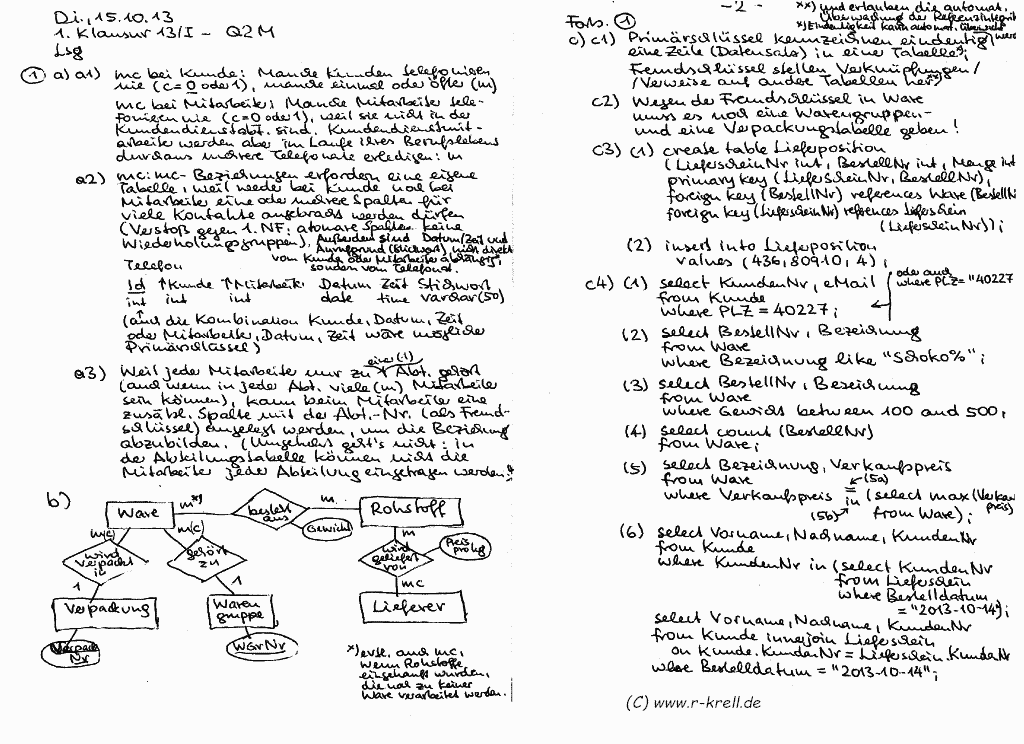 Di, 15.10.13
1. Klausur 13/I - Q2M
Lsg
① a) a1) mc bei Kunde: Manche Kunden telefonieren
nie (c=0 oder 1), manche einmal oder öfter (m)
mc bei Mitarbeiter: Manche Mitarbeiter tele-
fonieren nie (c=0 oder 1), weil sie nicht in der
Kundendienstabt. sind. Kundendienstmit-
arbeiter werden aber im Laufe ihres Berufslebens
durchaus mehrere Telefonate erledigen: m
a2) mc:mc-Beziehungen erfordern eine eigene
Tabelle, weil weder bei Kunde noch bei
Mitarbeiter eine oder mehrere Spalten für
viele Kontakte angebracht werden dürfen
(Verstoß gegen 1. NF: atomare Spalten, keine
Wiederholungsgruppen). Außerdem sind Datum/Zeit und
Anrufgrund (Stichwort) nicht direkt
von Kunde oder Mitarbeiter abhängig,
sondern vom Telefonat.
Telefon
Id ↑Kunde ↑Mitarbeiter Datum Zeit Stichwort
int int int date time varchar(50)
(auch die Kombination Kunde, Datum, Zeit
oder Mitarbeiter, Datum, Zeit wäre möglicher
Primärschlüssel)
a3) Weil jeder Mitarbeiter nur zu einer (1) Abt. gehört
(auch wenn in jeder Abt. viele (m) Mitarbeiter
sein können), kann beim Mitarbeiter eine
zusätzl. Spalte mit der Abt.-Nr. (als Fremd-
schlüssel) angelegt werden, um die Beziehung
abzubilden. (Umgekehrt geht's nicht: in
der Abteilungstabelle können nicht die
Mitarbeiter jeder Abteilung eingetragen werden.)
b)
Ware
m*)
besteht
aus
m
Rohstoff
Gewicht
m(c)
m(c)
m
wird
verpackt
in
gehört
zu
wird
geliefert
von
Preis
pro kg
1
1
mc
Verpackung
Waren
gruppe
Lieferer
Verpack
Nr
WGrNr
*) evtl. auch mc,
wenn Rohstoffe
eingekauft wurden,
die noch zu keiner
Ware verarbeitet werden.
- 2 -
**) und erlauben die automat.
Überwachung der Referenzintegrität
*) Eindeutigkeit kann automat. überwacht
werden
Forts. ①
c) c1) Primärschlüssel kennzeichnen eindeutig
eine Zeile (Datensatz) in einer Tabelle*);
Fremdschlüssel stellen Verknüpfungen/
/Verweise auf andere Tabellen her**)
c2) Wegen der Fremdschlüssel in Ware
muss es noch eine Warengruppen-
und eine Verpackungstabelle geben!
c3) (1) create table Lieferposition
(LieferscheinNr int, BestellNr int, Menge int
primary key (LieferscheinNr, BestellNr),
foreign key (BestellNr) references Ware (BestellNr
foreign key (LieferscheinNr) references Lieferschein
(LieferscheinNr));
(2) insert into Lieferposition
values (436, 80910, 4);
c4) (1) select KundenNr, eMail
from Kunde
where PLZ = 40227;
oder auch
where PLZ="40227
(2) select BestellNr, Bezeichnung
from Ware
where Bezeichnung like "Schoko%";
(3) select BestellNr, Bezeichnung
from Ware
where Gewicht between 100 and 500;
(4) select count (BestellNr)
from Ware;
(5) select Bezeichnung, Verkaufspreis
from Ware
(5a)
where Verkaufspreis = in (select max(Verkaufs
preis)
(5b) from Ware);
(6) select Vorname, Nachname, KundenNr
from Kunde
where KundenNr in (select KundenNr
from Lieferschein
where Bestelldatum
= "2013-10-14");
select Vorname, Nachname, KundenNr
from Kunde inner join Lieferschein
on Kunde.KundenNr = Lieferschein.KundenNr
where Bestelldatum = "2013-10-14";
(C) www.r-krell.de